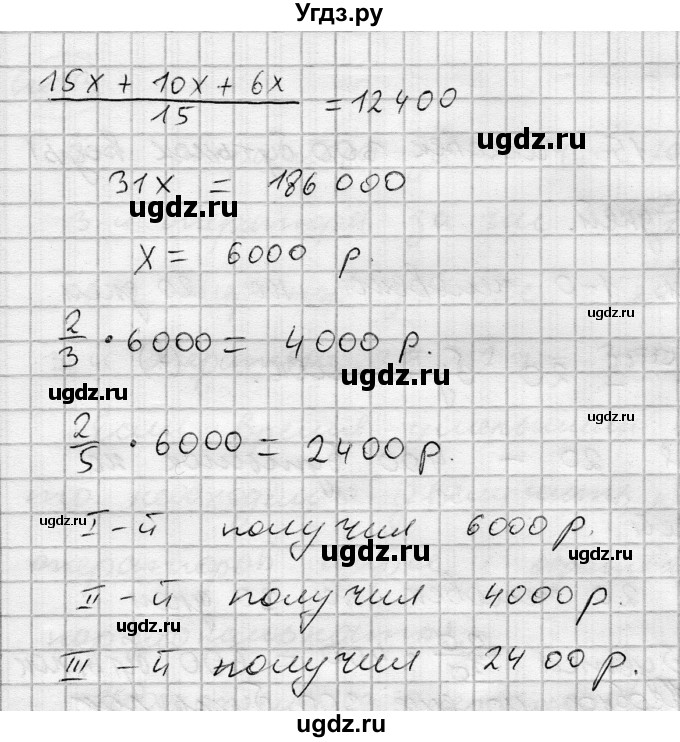 Угдз.ру
15x + 10x + 6x
15
= 12400
ugdz.ru
31x = 186000
ugdz.ru
x = 6000 р.
ugdz.ru
2/3 · 6000 = 4000 р.
ugdz.ru
ugdz.ru
2/5 · 6000 = 2400 р.
ugdz.ru
I-й получил 6000 р.
ugdz.ru
ugdz.ru
II-й получил 4000 р.
ugdz.ru
ugdz.ru
III-й получил 2400 р.
ugdz.ru
ugdz.ru